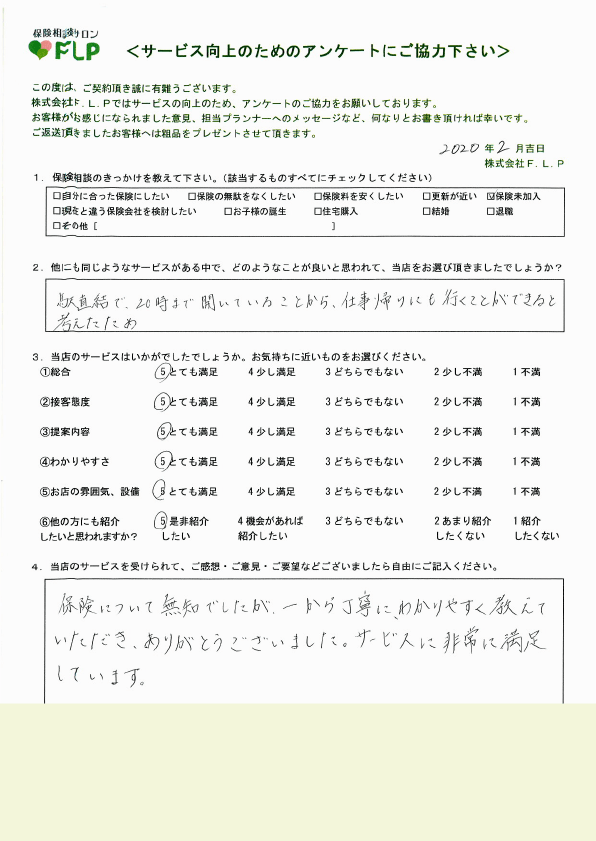 保険相談サロン
FLP
＜サービス向上のためのアンケートにご協力下さい＞
この度は、ご契約頂き誠に有難うございます。
株式会社F.L.Pではサービスの向上のため、アンケートのご協力をお願いしております。
お客様がお感じになられました意見、担当プランナーへのメッセージなど、何なりとお書き頂ければ幸いです。
ご返送頂きましたお客様へは粗品をプレゼントさせて頂きます。
2020 年 2 月吉日
株式会社F.L.P
1．保険相談のきっかけを教えて下さい。（該当するものすべてにチェックしてください）
□自分に合った保険にしたい □保険の無駄をなくしたい □保険料を安くしたい □更新が近い ☑保険未加入
□現在と違う保険会社を検討したい □お子様の誕生 □住宅購入 □結婚 □退職
□その他［ ］
2．他にも同じようなサービスがある中で、どのようなことが良いと思われて、当店をお選び頂きましたでしょうか？
駅直結で、20時まで開いていることから、仕事帰りにも行くことができると
考えたため
3．当店のサービスはいかがでしたでしょうか。お気持ちに近いものをお選びください。
①総合 5とても満足 4少し満足 3どちらでもない 2少し不満 1不満
②接客態度 5とても満足 4少し満足 3どちらでもない 2少し不満 1不満
③提案内容 5とても満足 4少し満足 3どちらでもない 2少し不満 1不満
④わかりやすさ 5とても満足 4少し満足 3どちらでもない 2少し不満 1不満
⑤お店の雰囲気、設備 5とても満足 4少し満足 3どちらでもない 2少し不満 1不満
⑥他の方にも紹介 5是非紹介 4機会があれば 3どちらでもない 2あまり紹介 1紹介
したいと思われますか？ したい 紹介したい したくない したくない
4．当店のサービスを受けられて、ご感想・ご意見・ご要望などございましたら自由にご記入ください。
保険について無知でしたが、一から丁寧に、わかりやすく教えて
いただき、ありがとうございました。サービスに非常に満足
しています。